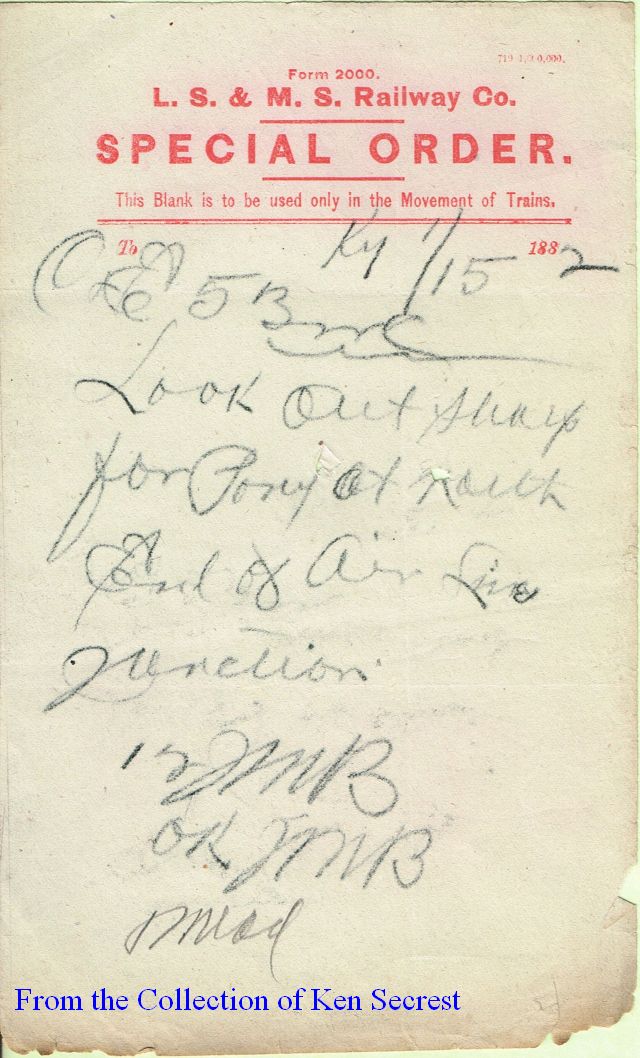 Form 2000.
L. S. & M. S. Railway Co.
SPECIAL ORDER.
This Blank is to be used only in the Movement of Trains.
To Ky 1/15 1882
C & E 5 B
Look Out Sharp
for Pony at North
End of Air Line
Junction
12 JMB
OK JMB
Mead
From the Collection of Ken Secrest